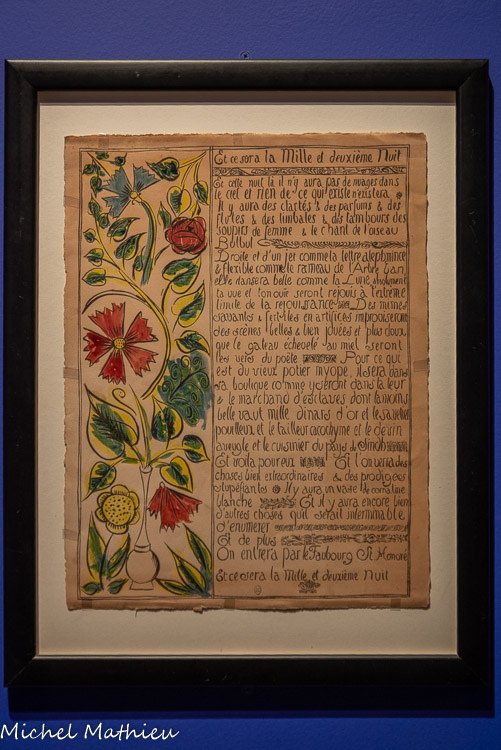 Et ce sera la Mille et deuxième Nuit
Et cette nuit là il n'y aura pas de nuages dans
le ciel et rien de ce qui existe n'existera
Il y aura des clartés & des parfums & des
flûtes & des timbales & des tambours des
soupirs de femme & le chant de l'oiseau
Bulbul
Droite et d'un jet comme la lettre aleph mince
& flexible comme le rameau de l'Arbre ban,
elle dansera belle comme la Lune absolument
la vue et l'onuie seront rejouis à l'extrème
limite de la rejouissance Des mimes
savants & fertiles en artifices improviseront
des scènes belles & bien jouées et plus doux
que le gateau échevelé au miel seront
les vers du poète Pour ce qui
est du vieux potier myope, il sera dans
sa boutique comme y seront dans la leur
& le marchand d'esclaves dont la moins
belle vaut mille dinars d'or et le savetier
pouilleux et le tailleur cacochyme et le devin
aveugle et le cuisinier du pays de Sindh
Et voilà pour eux Et l'on verra des
choses bien extraordinaires & des prodiges
stupéfiants Il y aura un vase de cornaline
blanche Et il y aura encore bien
d'autres choses qu'il serait interminable
d'enumerer
Et de plus
On entrera par le Faubourg St. Honoré
Et ce sera la Mille et deuxième Nuit
Michel Mathieu